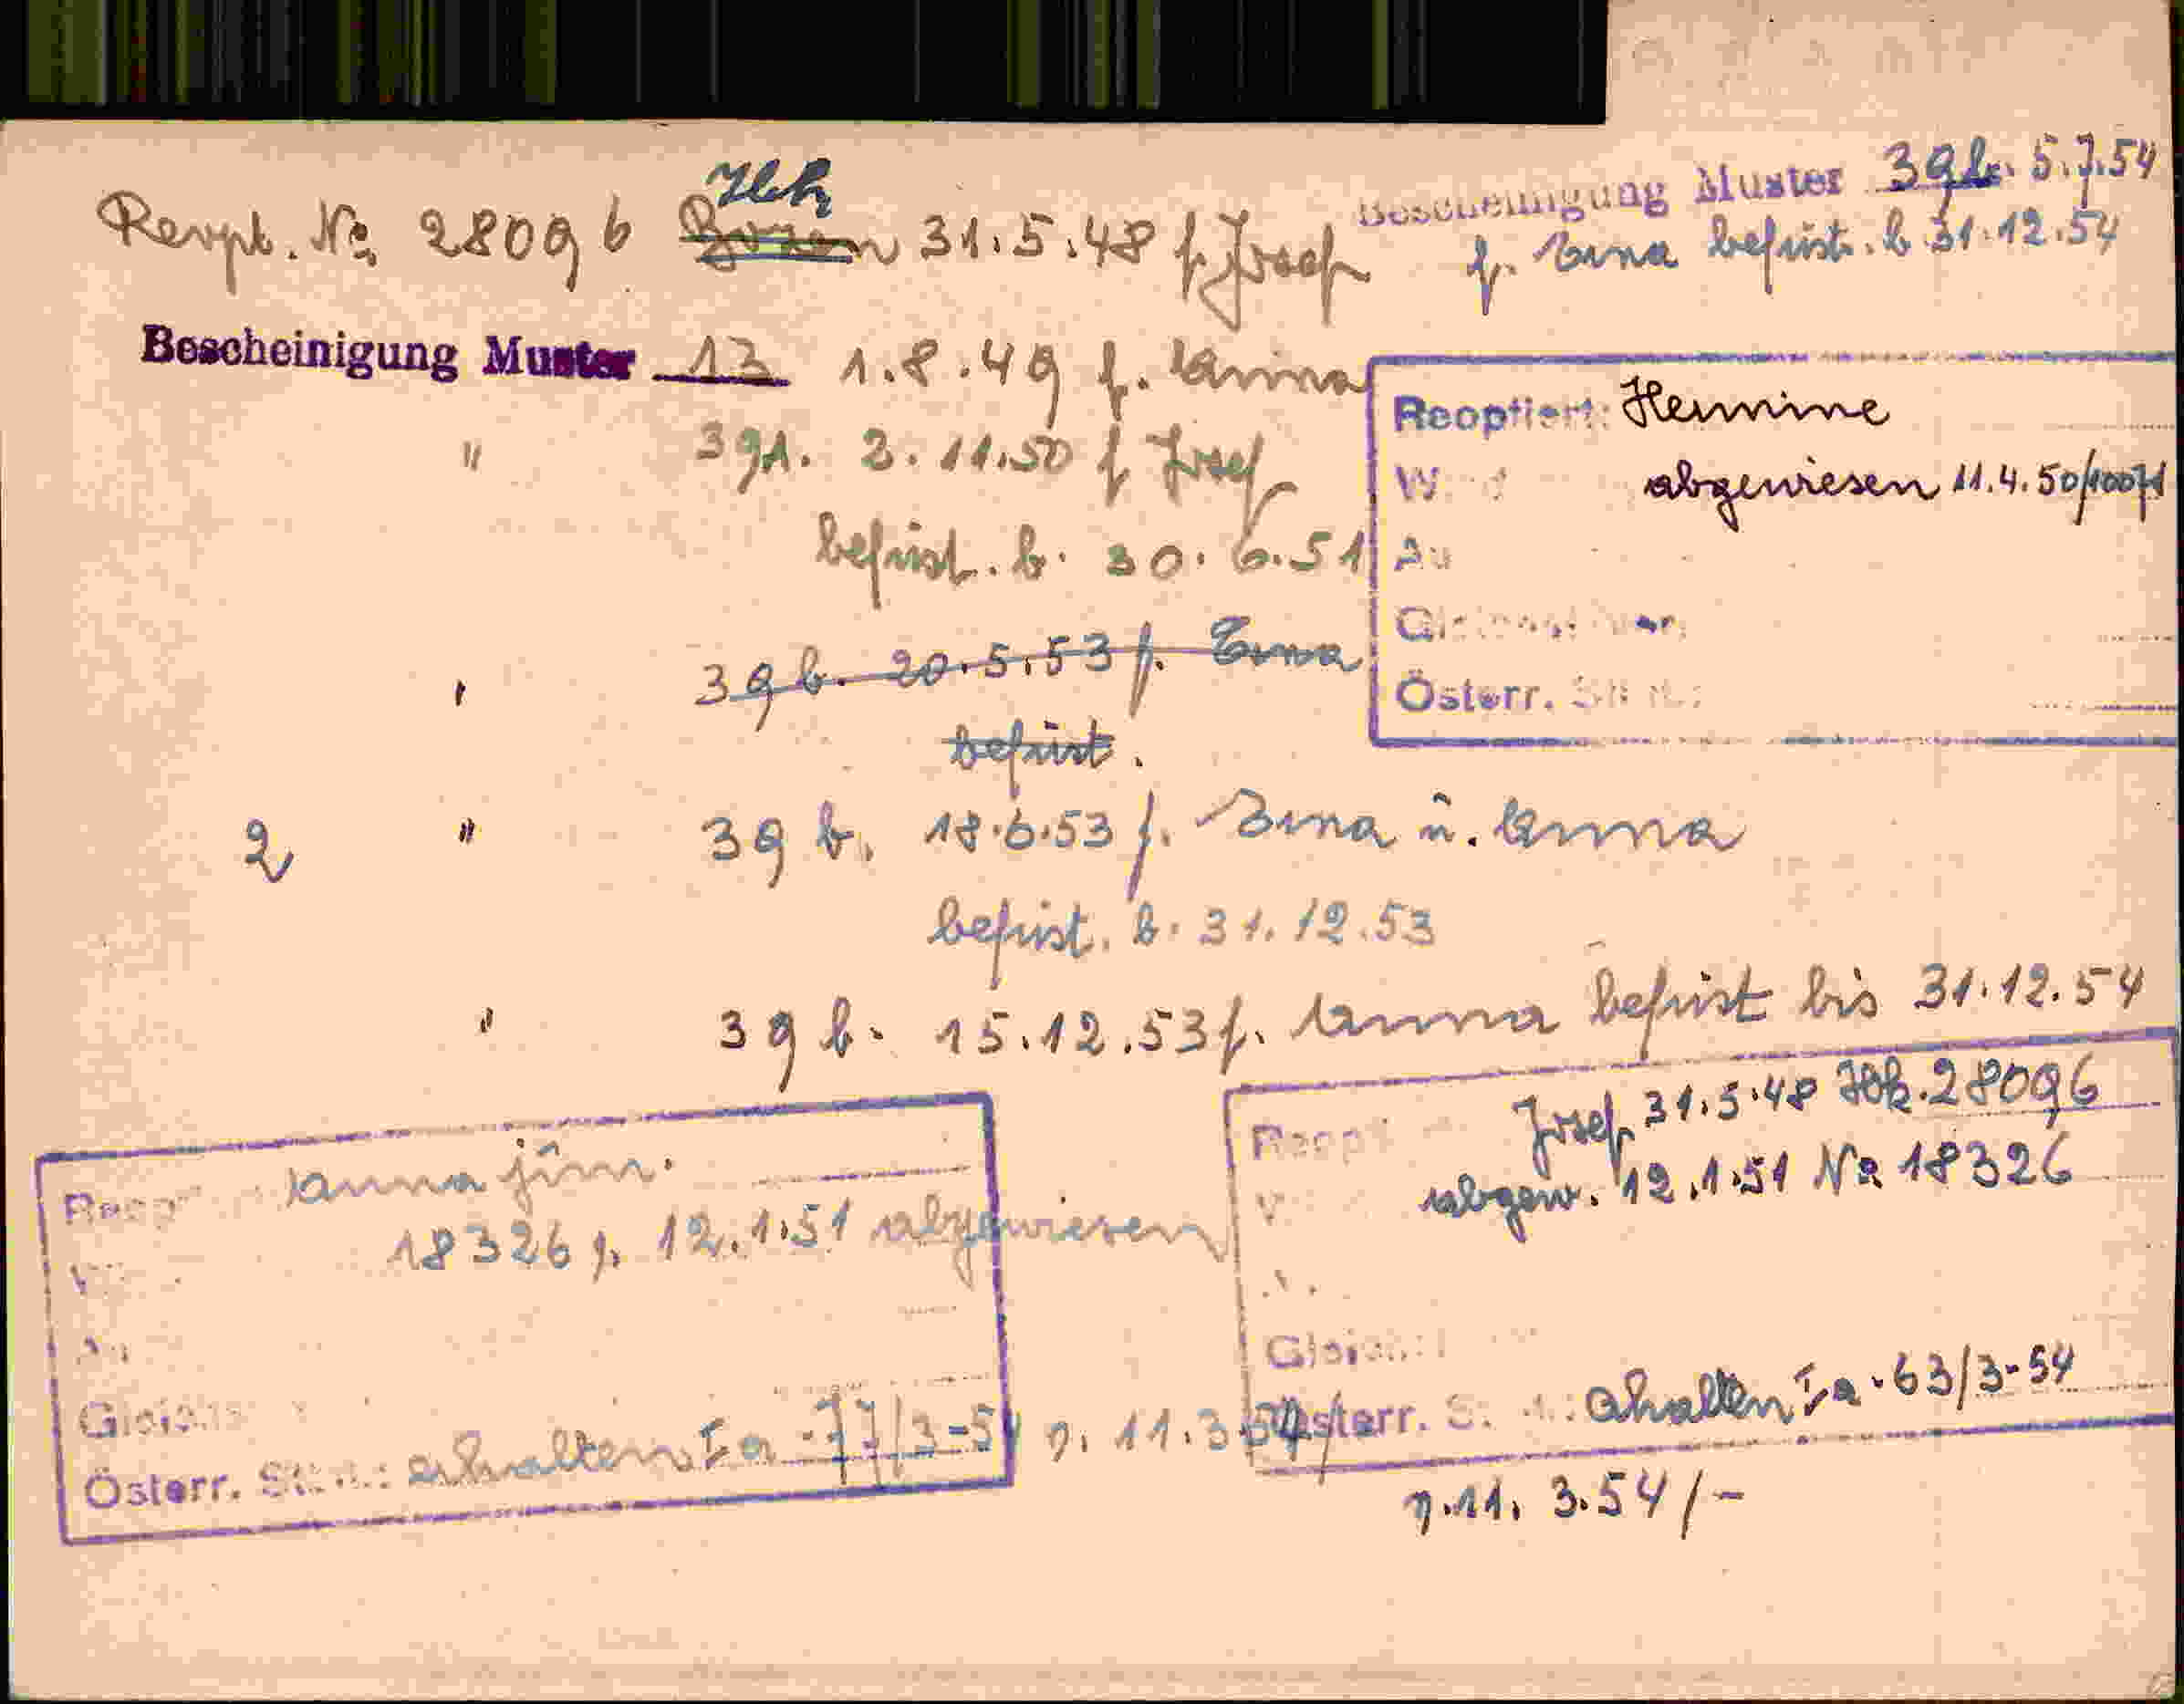 Reopt. No 28096 Ibk 31.5.48 f. Josef
Bescheinigung Muster 39b. 5.7.54
f. Erna befrist. b. 31.12.54
Bescheinigung Muster 13 1.8.49 f. Anna
" 39A. 2.11.50 f. Josef
befrist. b. 30.6.51
" 39b. 20.5.53 f. Erna
befrist.
2 " 39b. 18.6.53 f. Erna u. Anna
befrist. b. 31.12.53
" 39b. 15.12.53 f. Anna befrist bis 31.12.54
Reoptiert: Hermine
abgewiesen 11.4.50/10071
Österr.
Anna jun.
18326 v. 12.1.51 abgewiesen
Österr. erhalten Ia-77/3-54 v. 11.3.54/
Josef 31.5.48 Ibk. 28096
abgew. 12.1.51 No 18326
Österr. erhalten Ia-63/3-54
v. 11.3.54/-